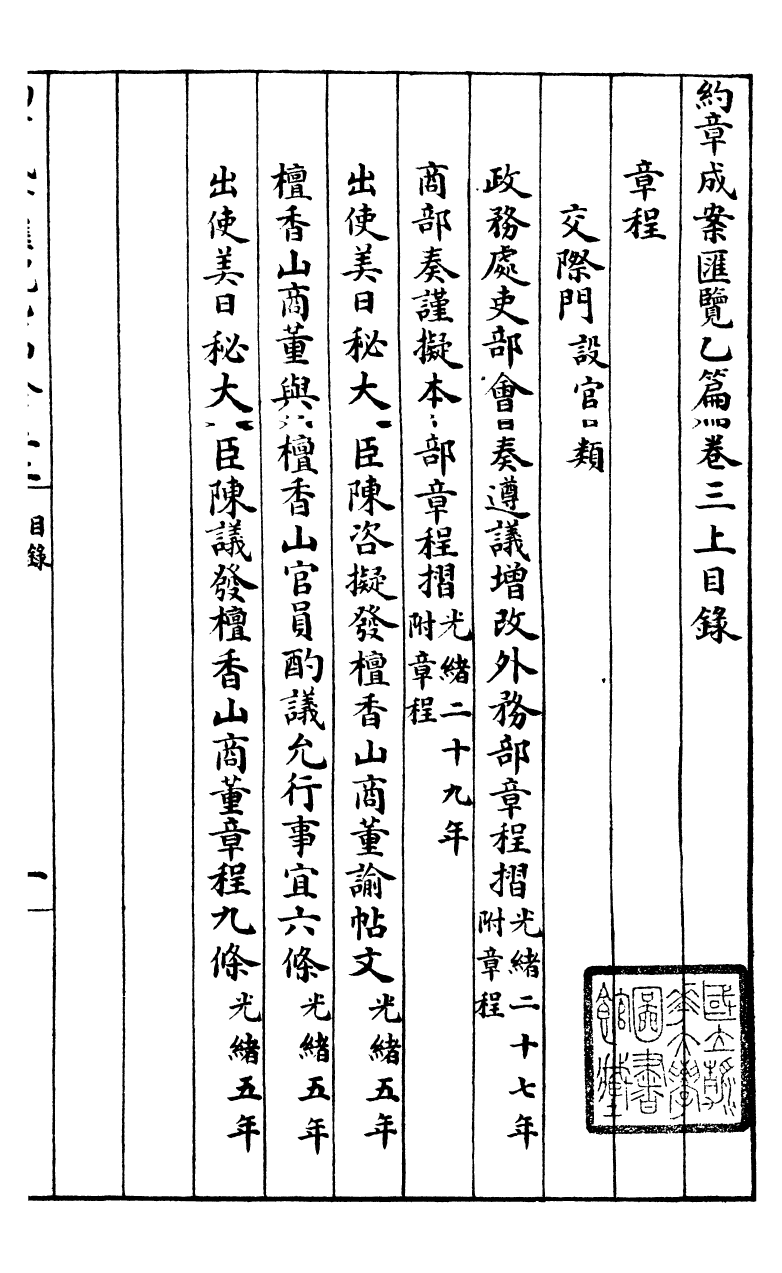 約章成案匯覽乙篇卷三上目錄
章程
交際門 設官類
政務處吏部會奏遵議增改外務部章程摺 光緒二十七年 附章程
商部奏謹擬本部章程摺 光緒二十九年 附章程
出使美日秘大臣陳咨擬發檀香山商董諭帖文 光緒五年
檀香山商董與檀香山官員酌議允行事宜六條 光緒五年
出使美日秘大臣陳議發檀香山商董章程九條 光緒五年
目錄
一
國立
大學
圖書
館